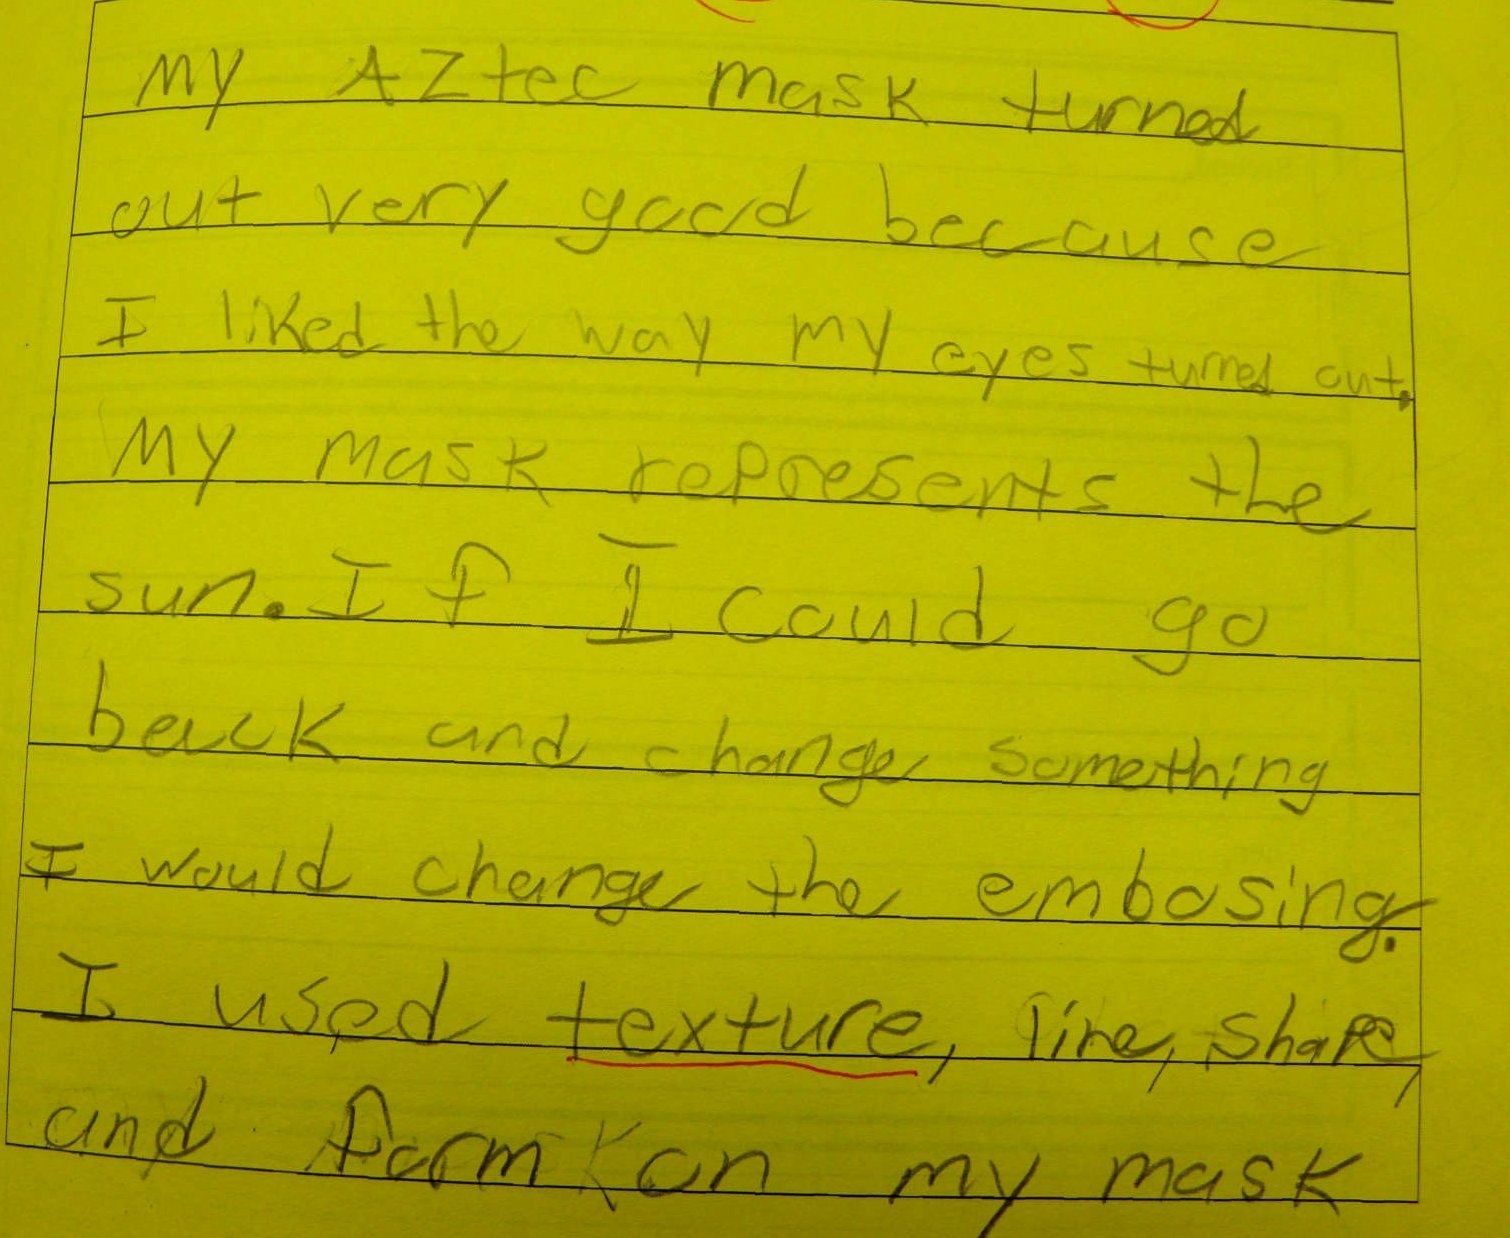 My Aztec mask turned
out very good because
I liked the way my eyes turned out.
My mask represents the
sun. If I could go
back and change something
I would change the embosing.
I used texture, line, shape,
and form on my mask